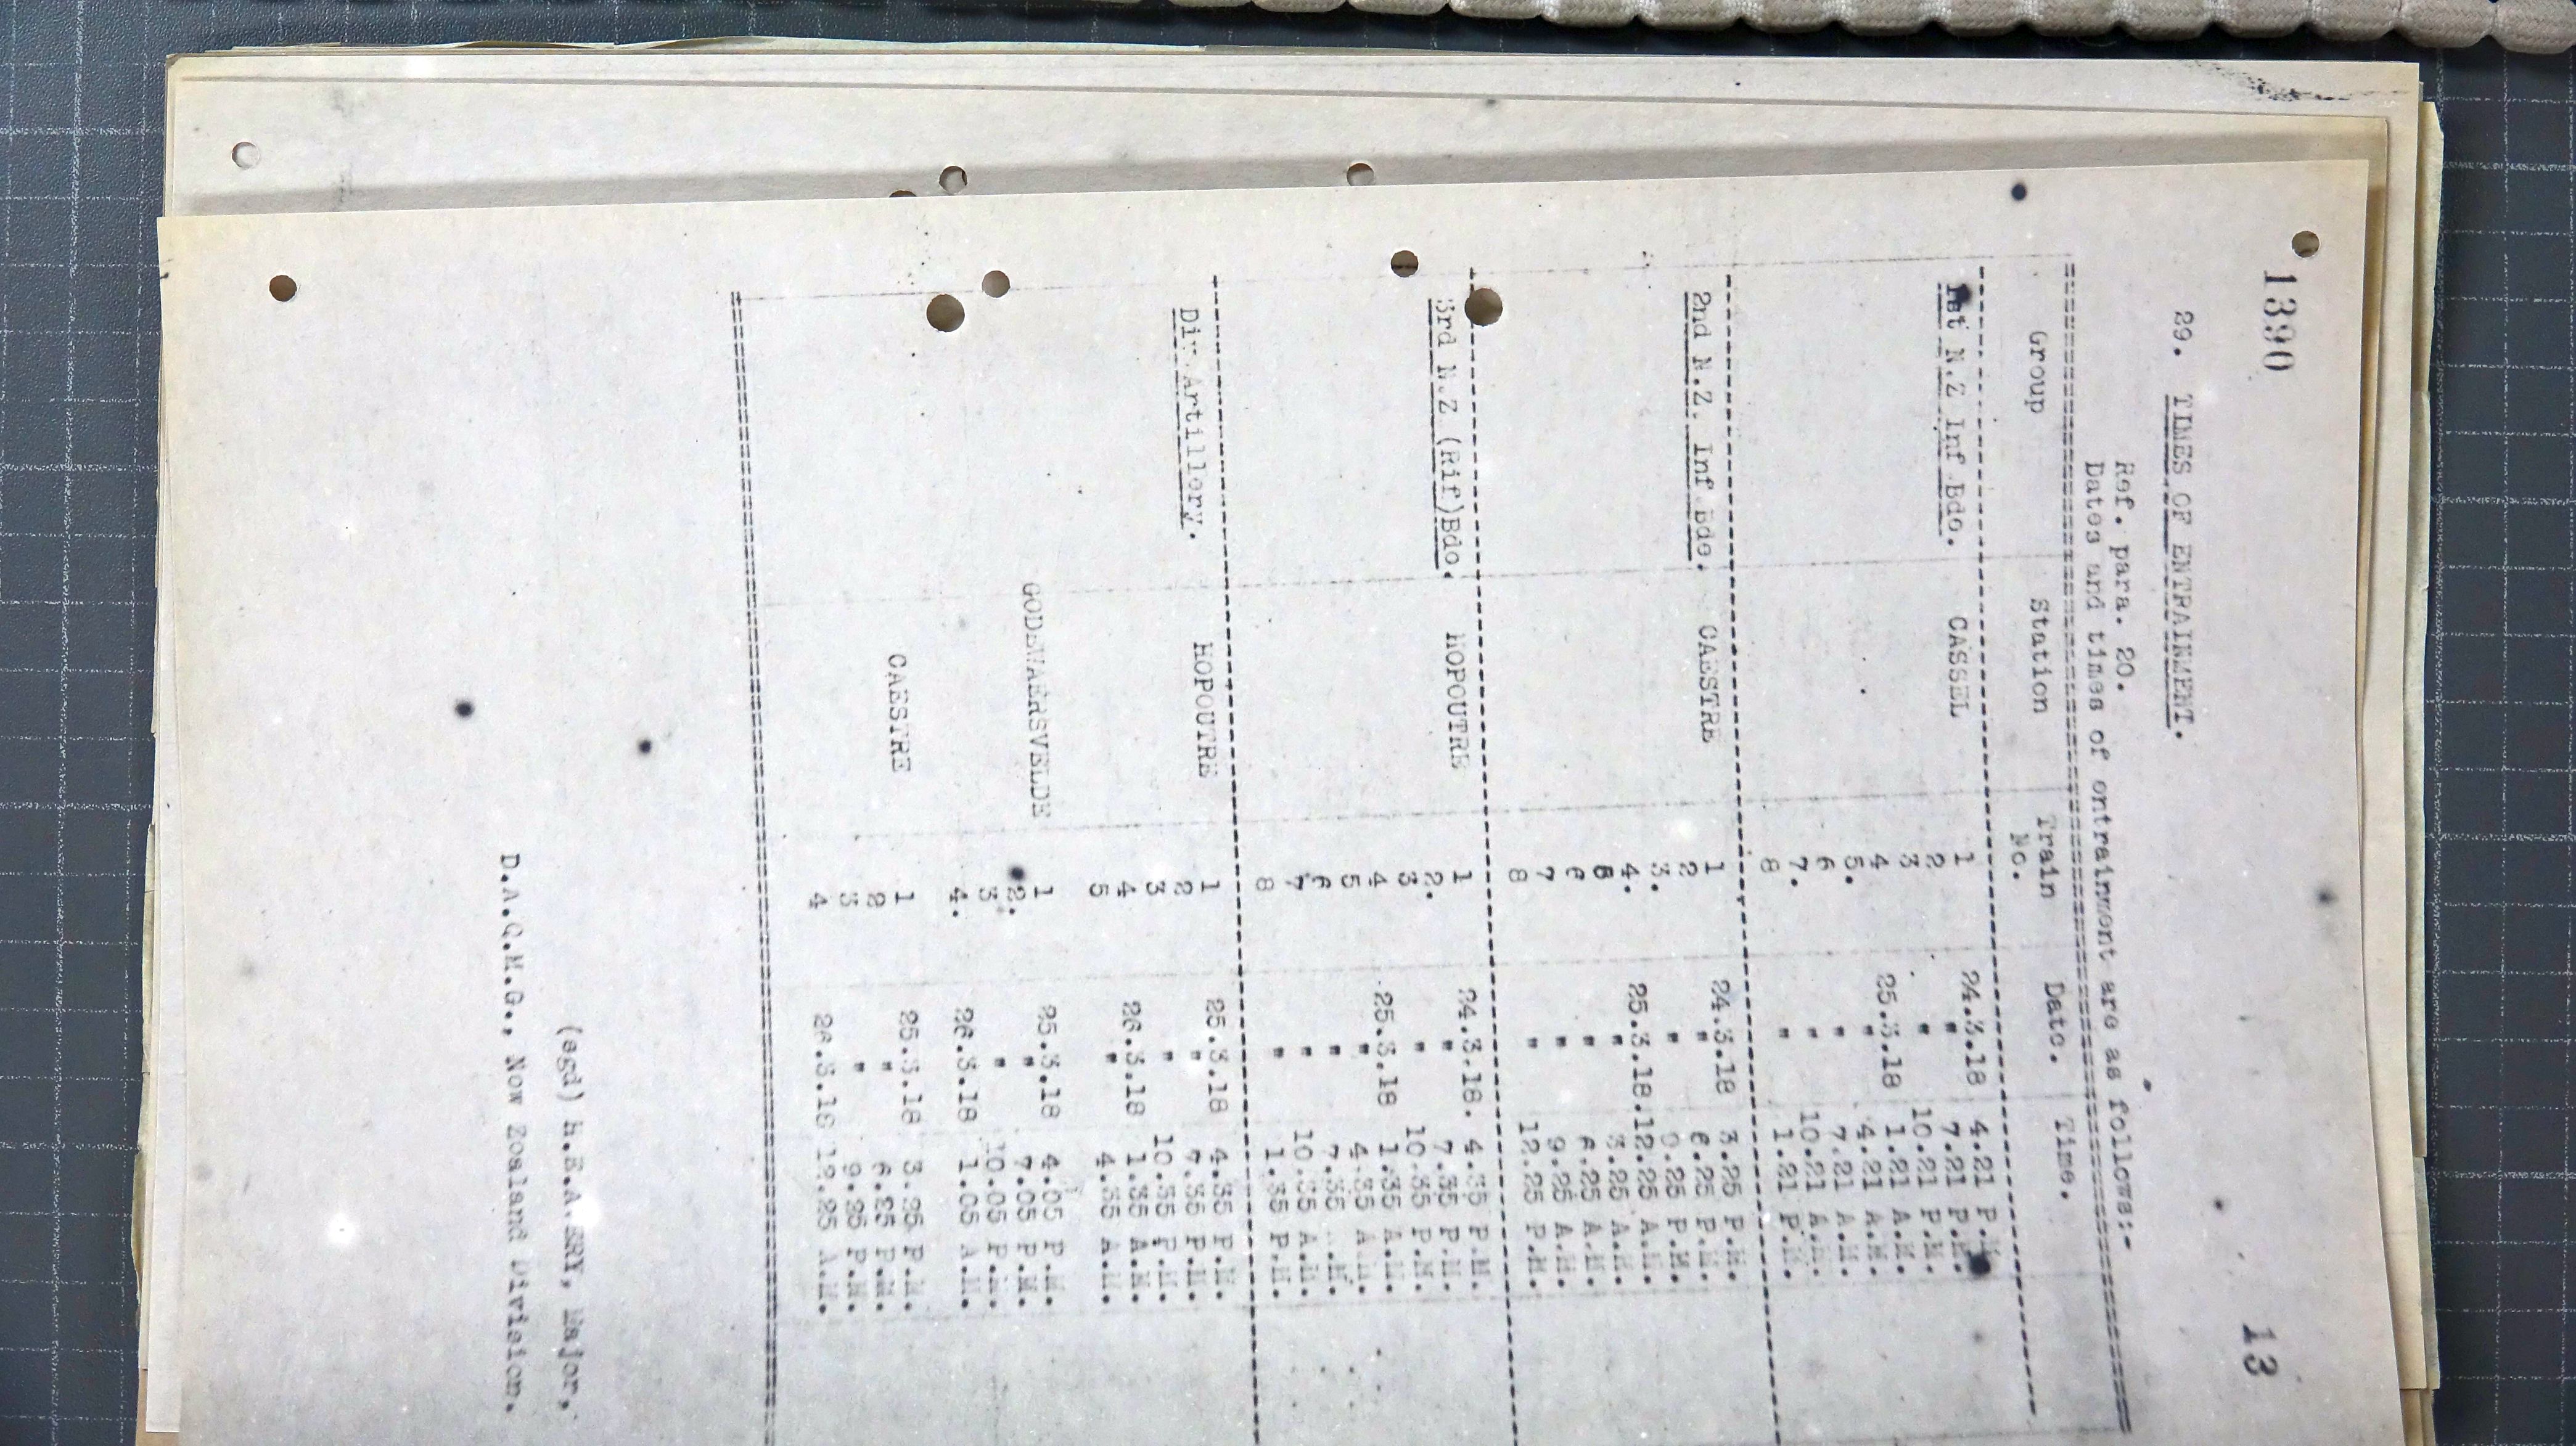 1390
13
29. TIMES OF ENTRAINMENT.
Ref. para. 20.
Dates and times of entrainment are as follows:-
Group Station Train No. Date. Time.
1st N.Z Inf Bde. CASSEL 1 24.3.18 4.21 P.M.
2 " 7.21 P.M.
3 " 10.21 P.M.
4 25.3.18 1.21 A.M.
5. " 4.21 A.M.
6 " 7.21 A.M.
7. " 10.21 A.M.
8 " 1.21 P.M.
2nd N.Z. Inf Bde. CAESTRE 1 24.3.18 3.25 P.M.
2 " 6.25 P.M.
3. " 9.25 P.M.
4. 25.3.18. 12.25 A.M.
5 " 3.25 A.M.
6 " 6.25 A.M.
7 " 9.25 A.M.
8 " 12.25 P.M.
3rd N.Z (Rif)Bde. HOPOUTRE 1 24.3.18. 4.35 P.M.
2. " 7.35 P.M.
3 " 10.35 P.M.
4 25.3.18 1.35 A.M.
5 " 4.35 A.M.
6 " 7.35 A.M.
7 " 10.35 A.M.
8 " 1.35 P.M.
Div.Artillery. HOPOUTRE 1 25.3.18 4.35 P.M.
2 " 7.35 P.M.
3 " 10.35 P.M.
4 26.3.18 1.35 A.M.
5 " 4.35 A.M.
GODEWAERSVELDE 1 25.3.18 4.05 P.M.
2. " 7.05 P.M.
3 " 10.05 P.M.
4. 26.3.18 1.05 A.M.
CAESTRE 1 25.3.18 3.25 P.M.
2 " 6.25 P.M.
3 " 9.25 P.M.
4 26.3.18 12.25 A.M.
(sgd) H.E.A. Major,
D.A.Q.M.G., New Zealand Division.